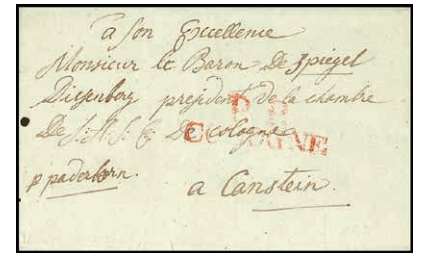 a Son Excellence
Monsieur le Baron De Spiegel
Diesenberg president de la chambre
De S: A: S: E: De Cologne
P. P.
COLOGNE
p paderborn.
a Canstein.